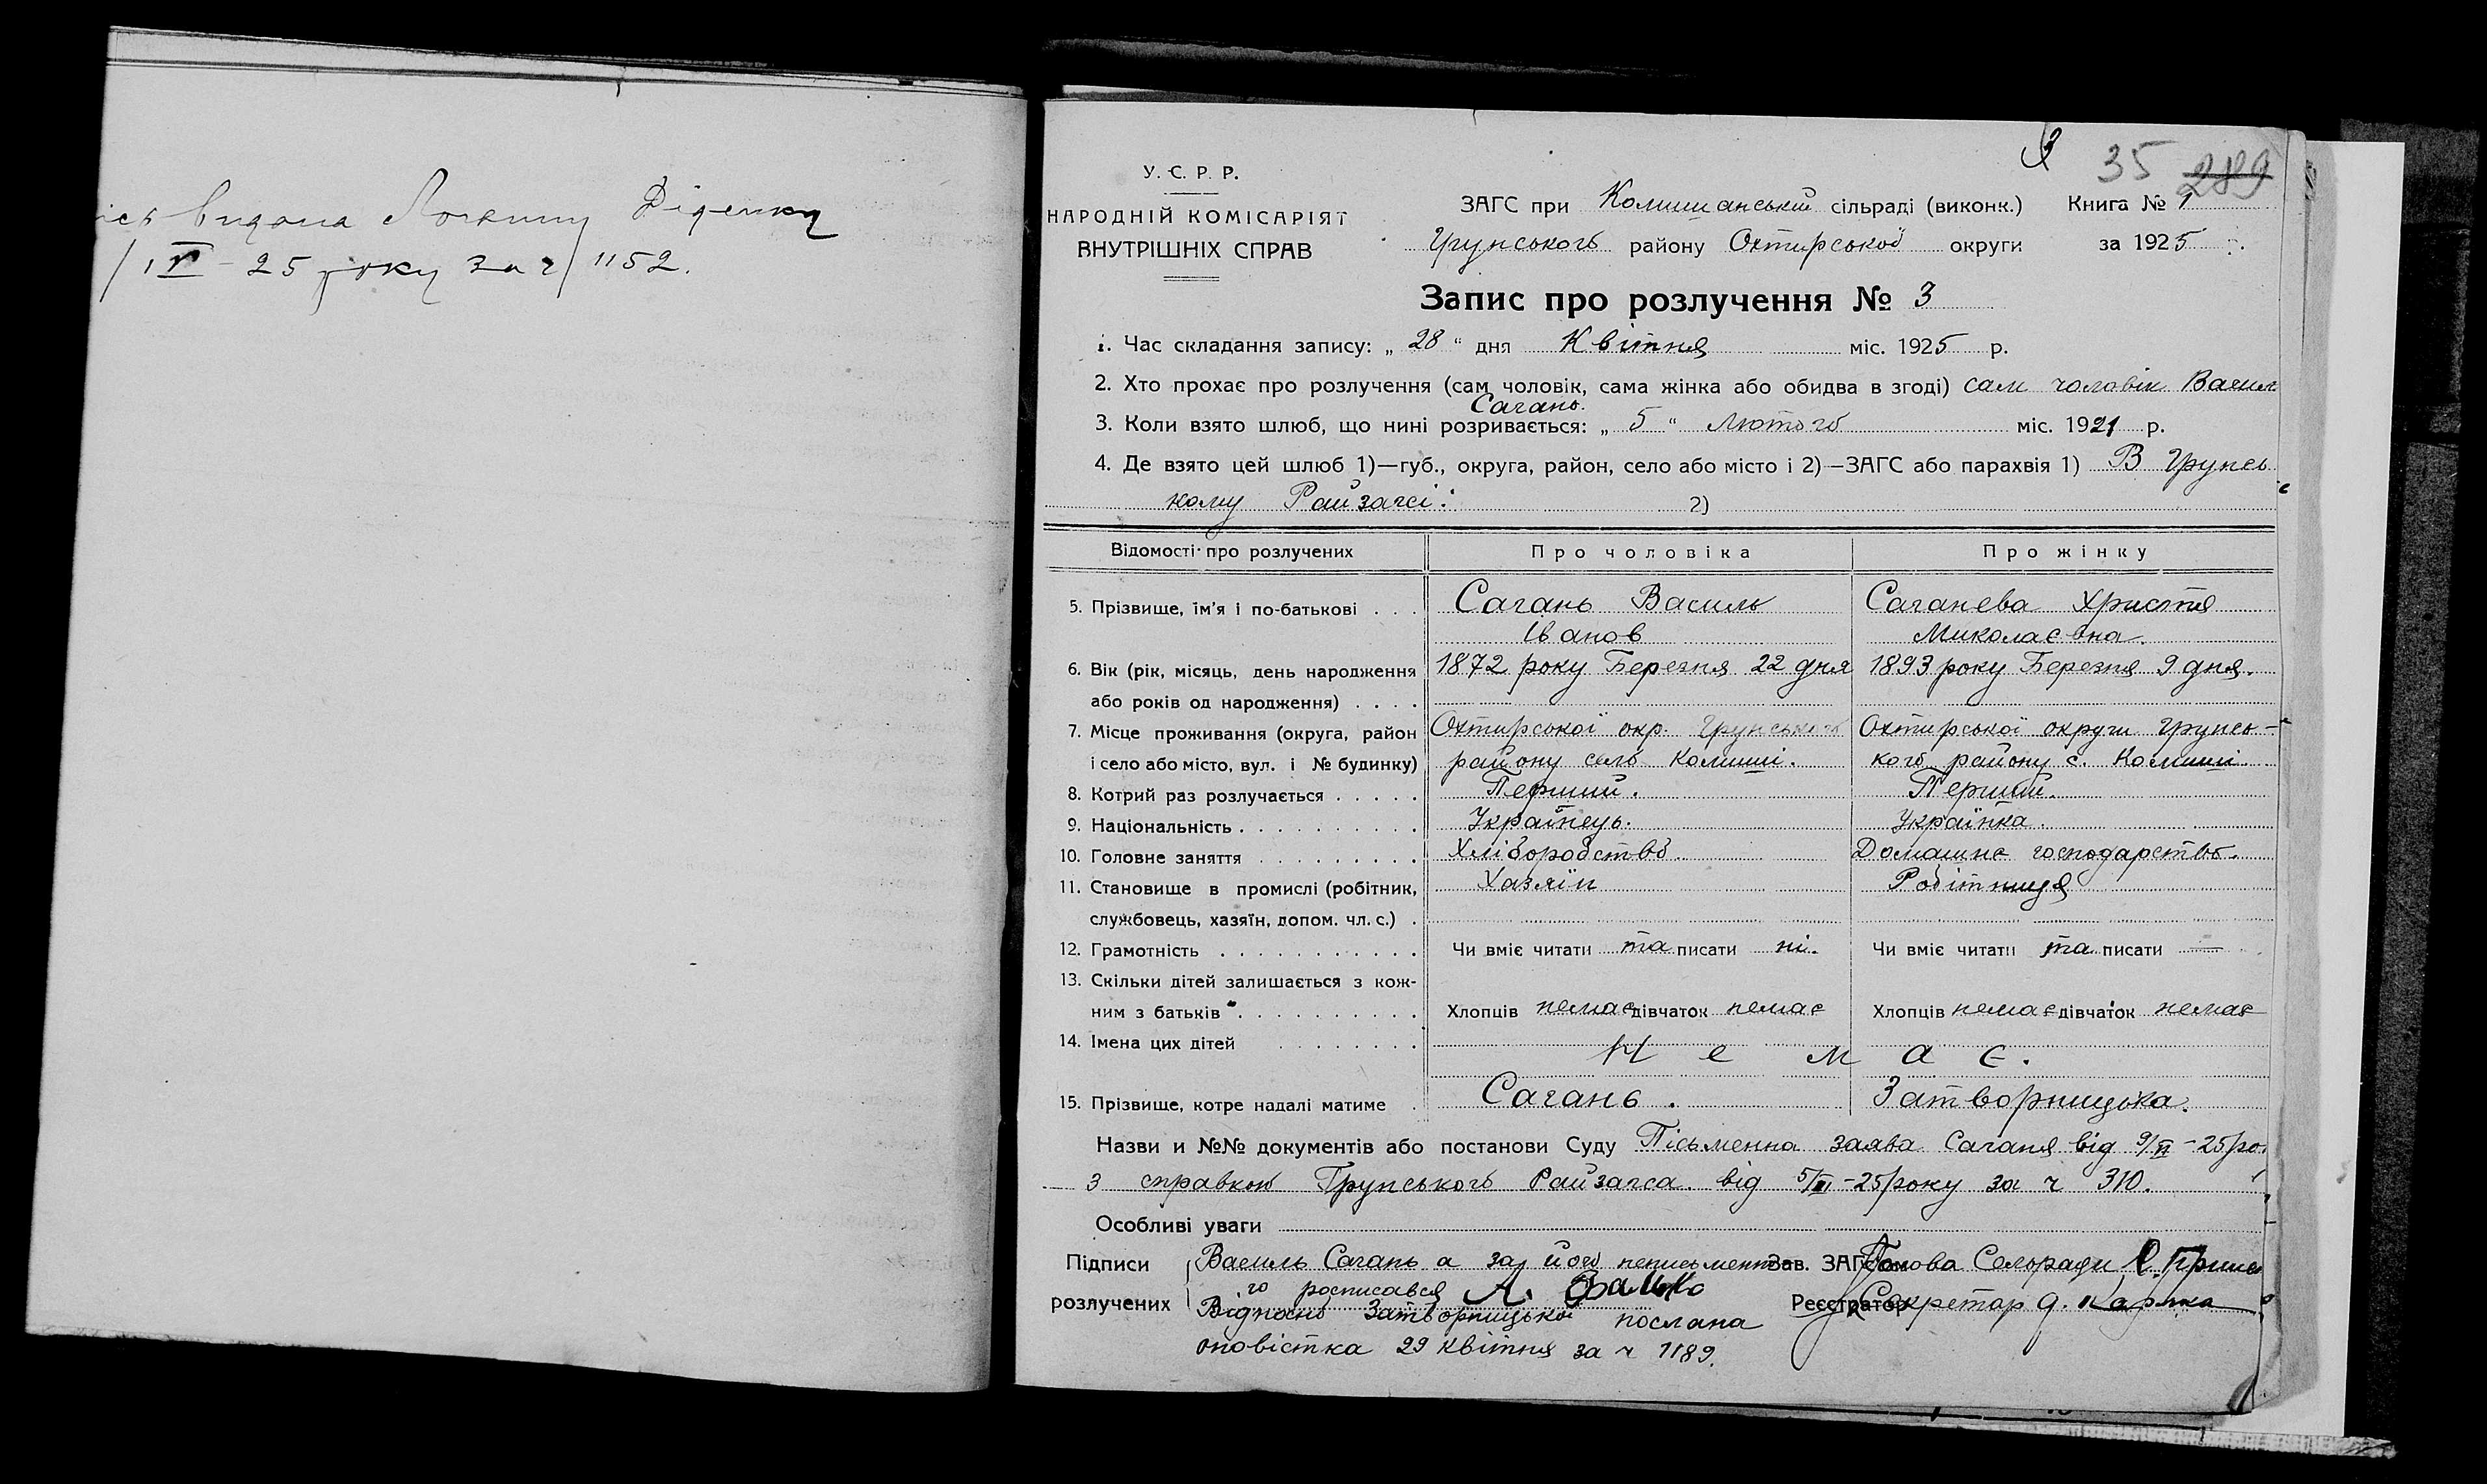 видана Діденку
25 року за ч 1152.
3 35 289
У. С. Р. Р.
НАРОДНІЙ КОМІСАРІЯТ
ВНУТРІШНІХ СПРАВ
ЗАГС при Комишанській сільраді (виконк.) Книга № 1
Грунського району Охтирської округи за 1925
Запис про розлучення № 3
1. Час складання запису: „ 28 “ дня Квітня міс. 1925 р.
2. Хто прохає про розлучення (сам чоловік, сама жінка або обидва в згоді) сам чоловік Васил
Сагань.
3. Коли взято шлюб, що нині розривається: „ 5 “ Лютого міс. 1921 р.
4. Де взято цей шлюб 1)—губ., округа, район, село або місто і 2)—ЗАГС або парахвія 1) В Грунсь
кому Райзагсі. 2)
Відомості про розлучених Про чоловіка Про жінку
5. Прізвище, їм'я і по-батькові . . . Сагань Василь Саганева Христя
Іванов Миколаєвна.
6. Вік (рік, місяць, день народження 1872 року Березня 22 дня 1893 року Березня 9 дня.
або років од народження) . . . .
7. Місце проживання (округа, район Охтирської окр. Грунського Охтирської округи Грунсь-
і село або місто, вул. і № будинку) району село Комиші. кого району с. Комиші
8. Котрий раз розлучається . . . . . Перший. Перший.
9. Національність . . . . . . . . . . Українець. Українка.
10. Головне заняття . . . . . . . . . Хліборобство. Домашнє господарство.
11. Становище в промислі (робітник, Хазяїн Робітниця
службовець, хазяїн, допом. чл. с.) .
12. Грамотність . . . . . . . . . . . Чи вміє читати та писати ні. Чи вміє читати та писати —
13. Скільки дітей залишається з кож-
ним з батьків . . . . . . . . . . Хлопців немає дівчаток немає Хлопців немає дівчаток немає
14. Імена цих дітей . . . . . . . .
Н е м а є.
15. Прізвище, котре надалі матиме . Сагань. Затворницька.
Назви и №№ документів або постанови Суду Пісьменна заява Саганя від 9/II -25 ро.
з справкою Грунського Райзагса від 5/III -25 року за ч 310.
Особливі уваги
Підписи Василь Сагань а за його неписьменно- Зав. ЗАГСом Голова Селоради
го росписався А. Фалько
розлучених Реєстратор Сакретар
Відносно Затворницької послана
оповістка 29 квітня за ч 1189.